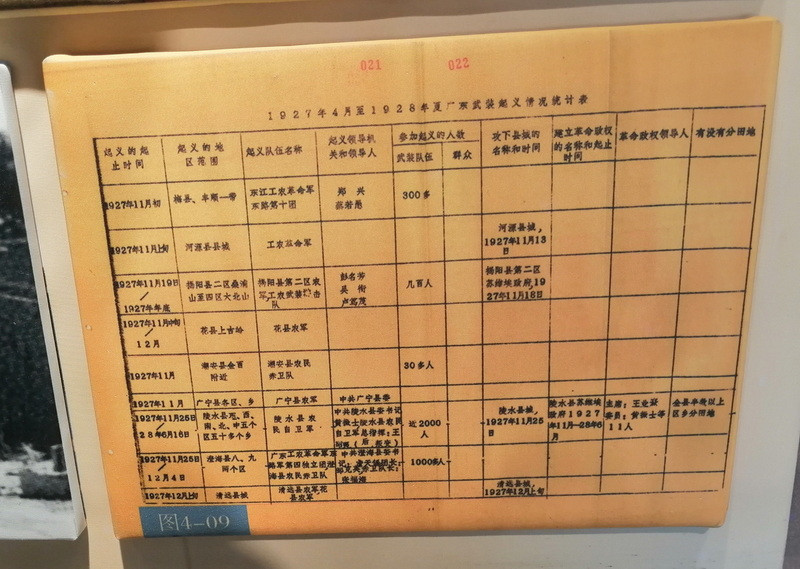 021 022
1927年4月至1928年夏广东武装起义情况统计表
起义的起止时间 起义的地区范围 起义队伍名称 起义领导机关和领导人 参加起义的人数 武装队伍 群众 攻下县城的名称和时间 建立革命政权的名称和起止时间 革命政权领导人 有没有分田地
1927年11月初 梅县、丰顺一带 东江工农革命军东路第十团 郑兴 300多
1927年11月上旬 河源县县城 工农革命军 河源县城,1927年11月13日
1927年11月19日/1927年年底 揭阳县二区桑浦山至四区大北山 揭阳县第二区农军工农武装 击队 彭名芳 吴衔 卢笃茂 几百人 揭阳县第二区苏维埃政府,1927年11月18日
1927年11月中旬/12月 花县上古岭 花县农军
1927年11月 潮安县金百附近 潮安县农民赤卫队 30多人
1927年11月 广宁县各区、乡 广宁县农军 中共广宁县委
1927年11月25日/28年6月16日 陵水县 西、南、北、中五个区五十多个乡 陵水县农民自卫军 中共陵水县委书记黄振士陵水县农民自卫军总指挥:王 近2000人 陵水县城,1927年11月25日 陵水县苏维埃政府1927年11月—28年6月 主席:王业熹 委员:黄振士等11人 全县半数以上区乡分田地
1927年11月25日/12月4日 澄海县八、九两个区 广东工农革命军东路军第四独立团澄海县农民赤卫队 中共澄海县委书记 1000多人
1927年12月上旬 清远县城 清远县农军花县农军 清远县城,1927年12月上旬
图4-09